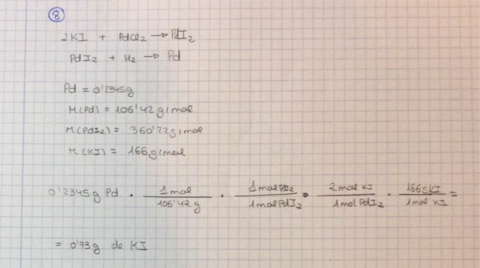 8
2KI + PdCl2 → PdI2
PdI2 + H2 → Pd
Pd = 0'2345g
M(Pd) = 106'42 g/mol
M(PdI2) = 360'22 g/mol
M(KI) = 166 g/mol
0'2345g Pd · 1mol / 106'42 g · 1mol PdI2 / 1mol PdI2 · 2mol KI / 1mol PdI2 · 166g KI / 1mol KI =
= 0'73g de KI